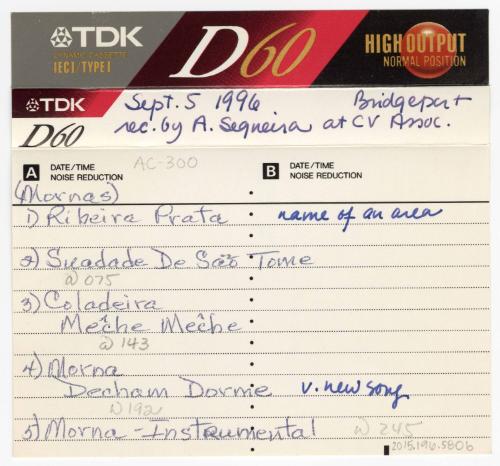 TDK
DYNAMIC CASSETTE
IECI/TYPE I
D60
HIGH OUTPUT
NORMAL POSITION
TDK
D60
Sept. 5 1996 Bridgeport
rec. by A. Sequeira at CV Assoc.
A DATE/TIME
NOISE REDUCTION
AC-300
B DATE/TIME
NOISE REDUCTION
(Mornas)
1) Ribeira Prata name of an area
2) Suadade De São Tome
@ 075
3) Coladeira
Mêche Mêche
@ 143
4) Morna
Decham Dormie v. new song
@ 192
5) Morna - Instrumental @ 245
2015.196.5806